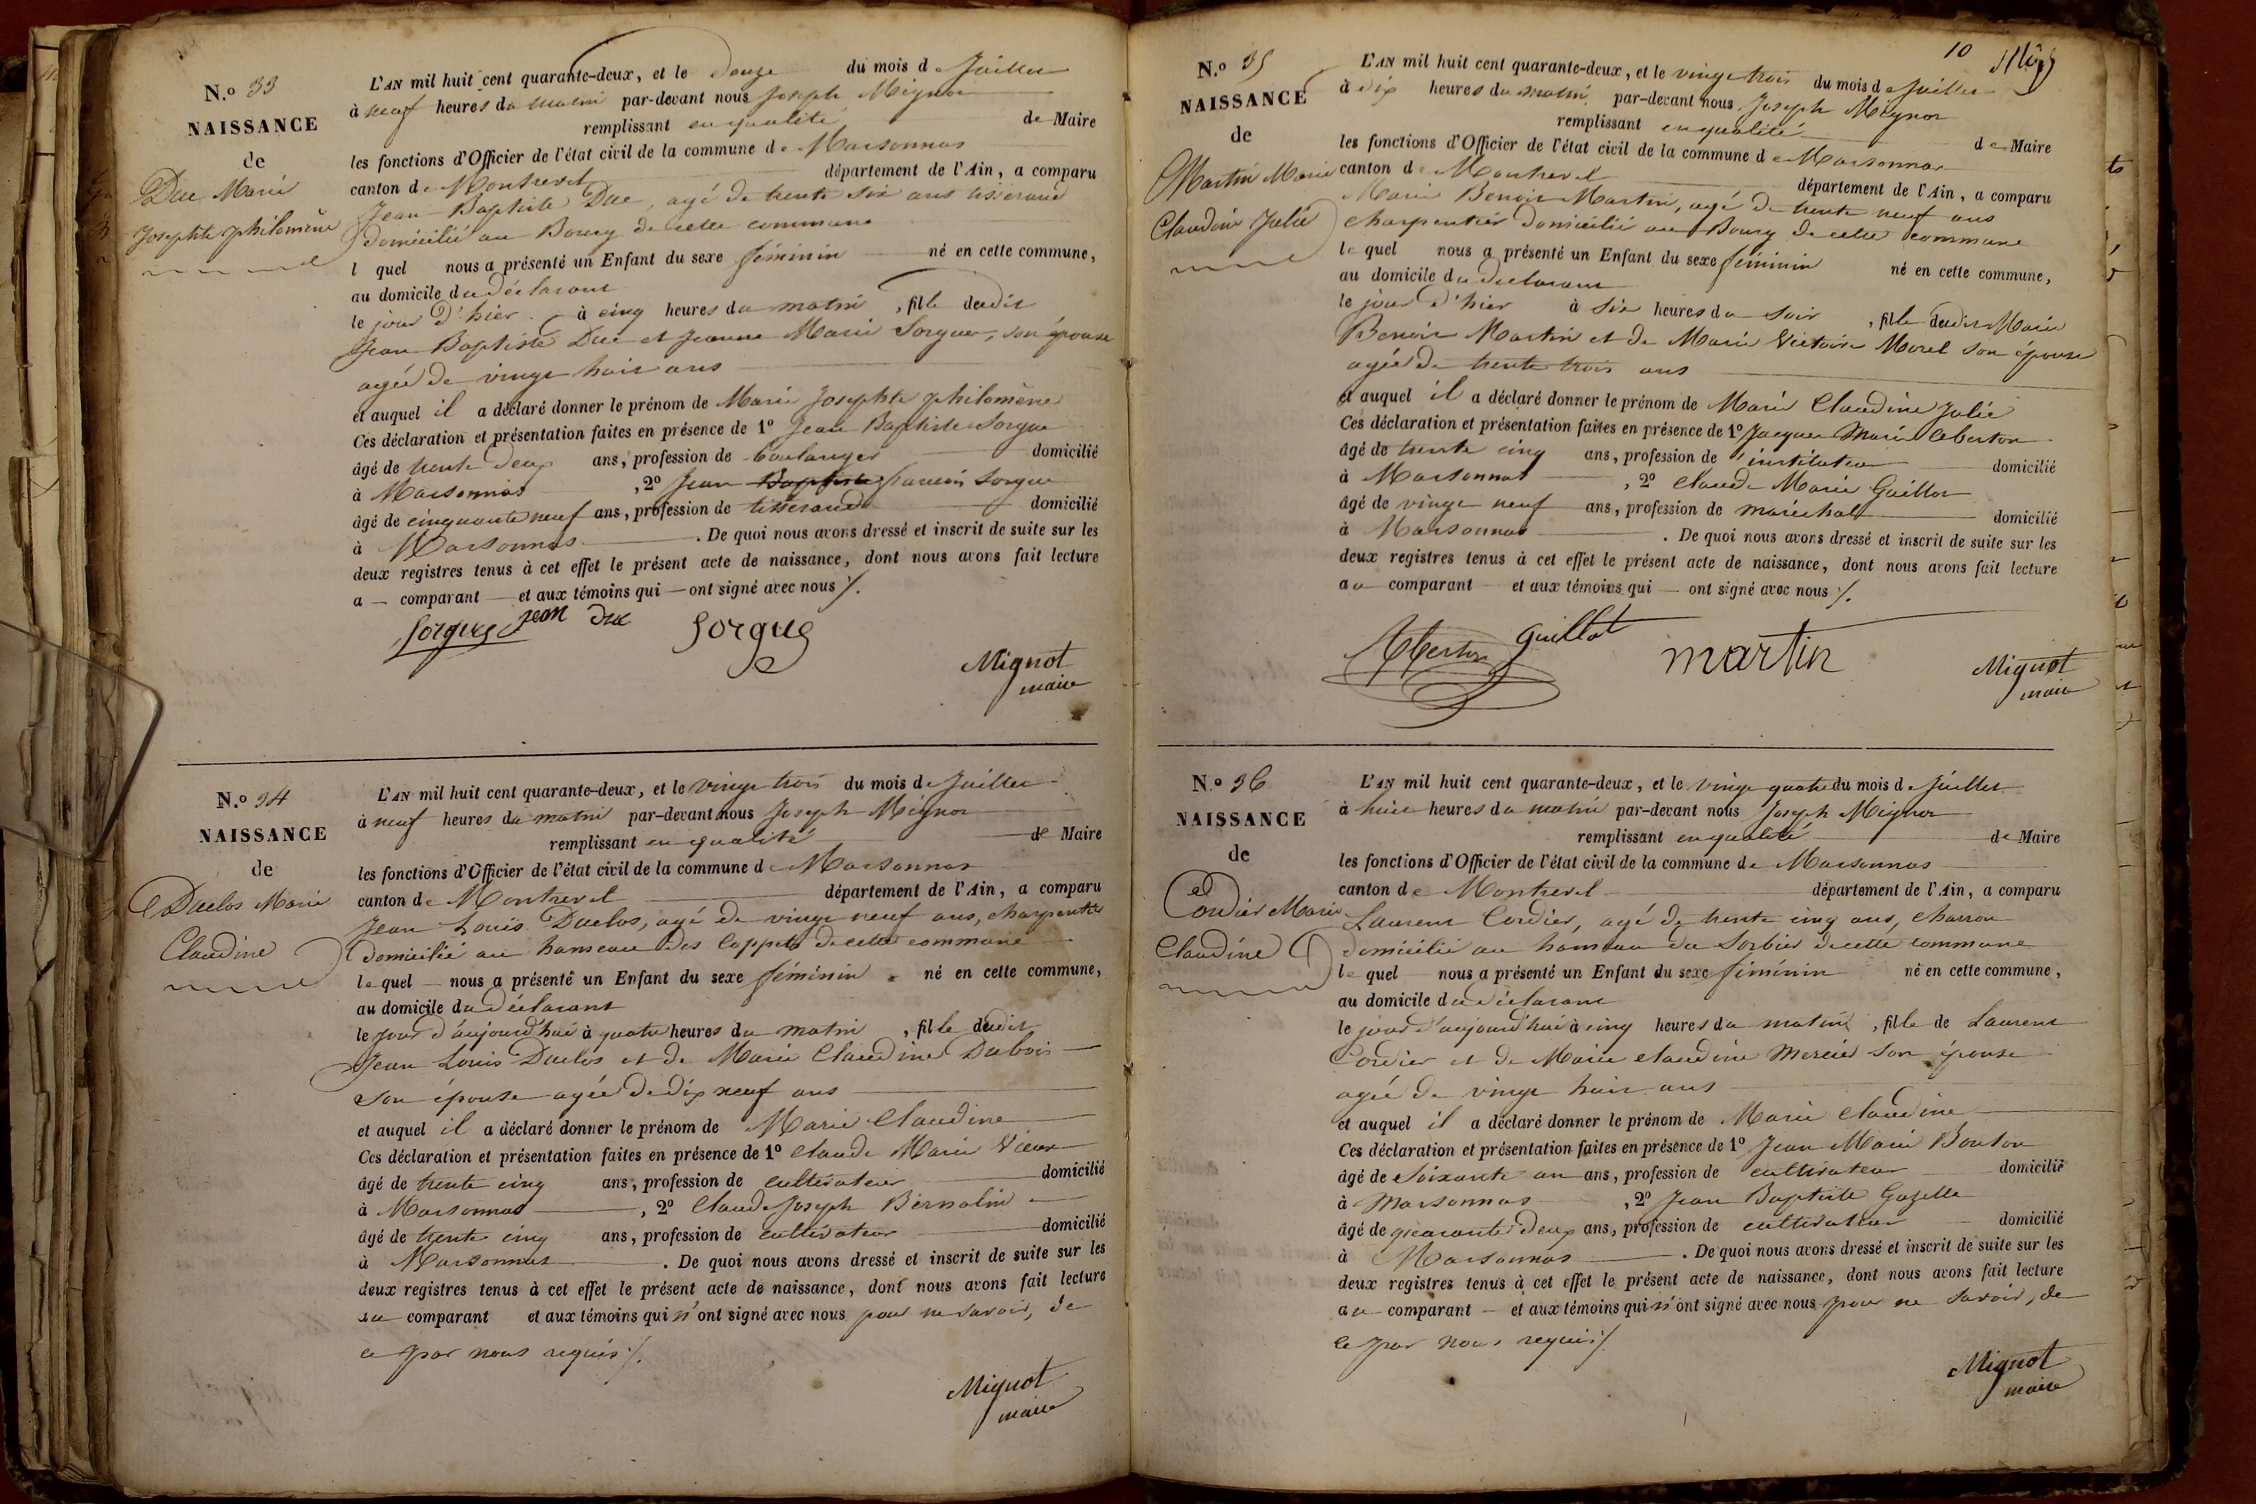 N.o 33
NAISSANCE
de
Duc Marie
Josephte philomène
L'AN mil huit cent quarante-deux, et le douze du mois de Juillet
à neuf heures du matin par-devant nous Joseph Mignot
remplissant en qualité de Maire
les fonctions d'Officier de l'état civil de la commune de Marsonnas
canton de Montrevel département de l'Ain, a comparu
Jean-Baptiste Duc, agé de trente six ans tisserand
domicilié au Bourg de cette commune
l quel nous a présenté un Enfant du sexe féminin né en cette commune,
au domicile du déclarant
le jour d'hier à cinq heures du matin, fille dudit
Jean Baptiste Duc et Jeanne Marie Sorgue, son épouse
agée de vingt huit ans
et auquel il a déclaré donner le prénom de Marie Josephte philomène
Ces déclaration et présentation faites en présence de 1o Jean Baptiste Sorgue
âgé de trente deux ans, profession de boulanger domicilié
à Marsonnas, 2o Jean Baptiste francois Sorgue
âgé de cinquante neuf ans, profession de tisserand domicilié
à Marsonnas. De quoi nous avons dressé et inscrit de suite sur les
deux registres tenus à cet effet le présent acte de naissance, dont nous avons fait lecture
a — comparant — et aux témoins qui — ont signé avec nous ./.
Sorgue Jean Duc Sorgue
Mignot
maire
N.o 34
NAISSANCE
de
Duclos Marie
Claudine
L'AN mil huit cent quarante-deux, et le vingt trois du mois de Juillet
à neuf heures du matin par-devant nous Joseph Mignot
remplissant en qualité de Maire
les fonctions d'Officier de l'état civil de la commune de Marsonnas
canton de Montrevel département de l'Ain, a comparu
Jean Louis Duclos, agé de vingt neuf ans, charpentier
domicilié au hameau des Coppets de cette commune
le quel — nous a présenté un Enfant du sexe féminin né en cette commune,
au domicile du déclarant
le jour d'aujourd'hui à quatre heures du matin, fille dudit
Jean Louis Duclos et de Marie Claudine Dubois
son épouse agée de dix neuf ans
et auquel il a déclaré donner le prénom de Marie Claudine
Ces déclaration et présentation faites en présence de 1o Claude Marie Vieux
âgé de trente cinq ans, profession de cultivateur domicilié
à Marsonnas, 2o Claude Joseph Bernolin
âgé de trente cinq ans, profession de cultivateur domicilié
à Marsonnas. De quoi nous avons dressé et inscrit de suite sur les
deux registres tenus à cet effet le présent acte de naissance, dont nous avons fait lecture
au comparant et aux témoins qui n'ont signé avec nous pour ne savoir, de
ce par nous requis ./.
Mignot
maire
10
N.o 35
NAISSANCE
de
Martin Marie
Claudine Julie
L'AN mil huit cent quarante-deux, et le vingt trois du mois de Juillet
à dix heures du matin par-devant nous Joseph Mignot
remplissant en qualité de Maire
les fonctions d'Officier de l'état civil de la commune de Marsonnas
canton de Montrevel département de l'Ain, a comparu
Marie Benoit Martin, agé de trente neuf ans
charpentier domicilié au Bourg de cette commune
le quel nous a présenté un Enfant du sexe féminin né en cette commune,
au domicile du déclarant
le jour d'hier à six heures du soir, fille dudit Marie
Benoit Martin et de Marie Victoire Morel son épouse
agée de trente trois ans
et auquel il a déclaré donner le prénom de Marie Claudine Julie
Ces déclaration et présentation faites en présence de 1o Jacques Marie Cberton
âgé de trente cinq ans, profession de instituteur domicilié
à Marsonnas, 2o Claude Marie Guillot
âgé de vingt neuf ans, profession de maréchal domicilié
à Marsonnas. De quoi nous avons dressé et inscrit de suite sur les
deux registres tenus à cet effet le présent acte de naissance, dont nous avons fait lecture
au comparant — et aux témoins qui — ont signé avec nous ./.
guillot martin
Mignot
maire
N.o 36
NAISSANCE
de
Cordier Marie
Claudine
L'AN mil huit cent quarante-deux, et le vingt quatre du mois de Juillet
à huit heures du matin par-devant nous Joseph Mignot
remplissant en qualité de Maire
les fonctions d'Officier de l'état civil de la commune de Marsonnas
canton de Montrevel département de l'Ain, a comparu
Laurent Cordier, agé de trente cinq ans, charron
domicilié au hameau du Sorbier de cette commune
le quel — nous a présenté un Enfant du sexe féminin né en cette commune,
au domicile du déclarant
le jour d'aujourd'hui à cinq heures du matin, fille de Laurent
Cordier et de Marie claudine Mercier son épouse
agée de vingt huit ans
et auquel il a déclaré donner le prénom de Marie Claudine
Ces déclaration et présentation faites en présence de 1o Jean Marie Bouton
âgé de Soixante un ans, profession de cultivateur domicilié
à Marsonnas, 2o Jean Baptiste Gazelle
âgé de quarante deux ans, profession de cultivateur domicilié
à Marsonnas. De quoi nous avons dressé et inscrit de suite sur les
deux registres tenus à cet effet le présent acte de naissance, dont nous avons fait lecture
au comparant — et aux témoins qui n'ont signé avec nous pour ne savoir, de
ce par nous requis ./.
Mignot
maire